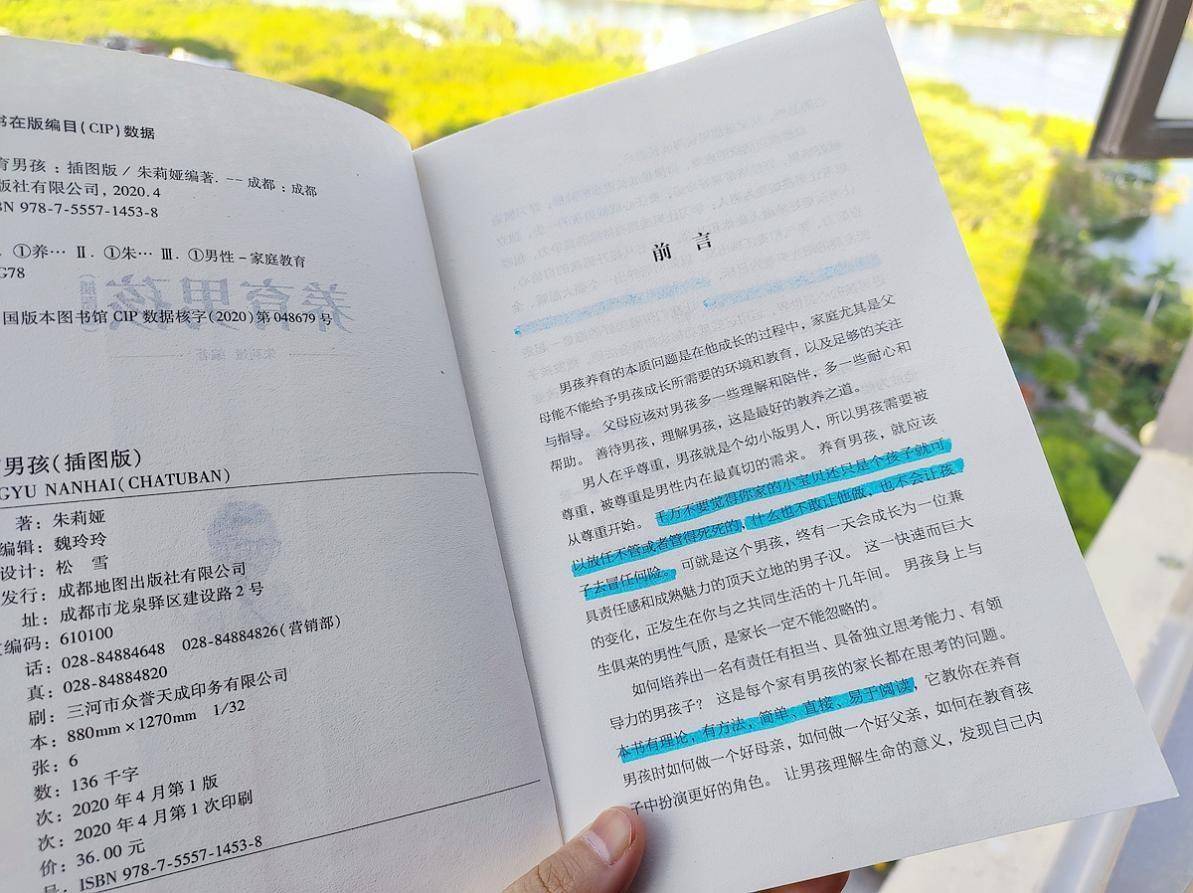 书在版编目(CIP)数据
育男孩：插图版/朱莉娅编著. -- 成都：成都
版社有限公司, 2020.4
BN 978-7-5557-1453-8
. ①养… Ⅱ. ①朱… Ⅲ. ①男性－家庭教育
G78
国版本图书馆 CIP 数据核字(2020)第 048679 号
男孩(插图版)
GYU NANHAI(CHATUBAN)
著：朱莉娅
编辑：魏玲玲
设计：松 雪
发行：成都地图出版社有限公司
址：成都市龙泉驿区建设路2号
编码：610100
话：028-84884648 028-84884826(营销部)
真：028-84884820
刷：三河市众誉天成印务有限公司
本：880mm×1270mm 1/32
张：6
数：136 千字
次：2020 年 4 月第 1 版
次：2020 年 4 月第 1 次印刷
价：36.00 元
号：ISBN 978-7-5557-1453-8
前 言
男孩养育的本质问题是在他成长的过程中，家庭尤其是父
母能不能给予男孩成长所需要的环境和教育，以及足够的关注
与指导。 父母应该对男孩多一些理解和陪伴，多一些耐心和
帮助。 善待男孩，理解男孩，这是最好的教养之道。
男人在乎尊重，男孩就是个幼小版男人，所以男孩需要被
尊重，被尊重是男性内在最真切的需求。 养育男孩，就应该
从尊重开始。 千万不要觉得你家的小宝贝还只是个孩子就可
以放任不管或者管得死死的，什么也不敢让他做，也不会让孩
子去冒任何险。 可就是这个男孩，终有一天会成长为一位兼
具责任感和成熟魅力的顶天立地的男子汉。 这一快速而巨大
的变化，正发生在你与之共同生活的十几年间。 男孩身上与
生俱来的男性气质，是家长一定不能忽略的。
如何培养出一名有责任有担当、具备独立思考能力、有领
导力的男孩子？ 这是每个家有男孩的家长都在思考的问题。
本书有理论，有方法，简单、直接、易于阅读，它教你在养育
男孩时如何做一个好母亲，如何做一个好父亲，如何在教育孩
子中扮演更好的角色。 让男孩理解生命的意义，发现自己内